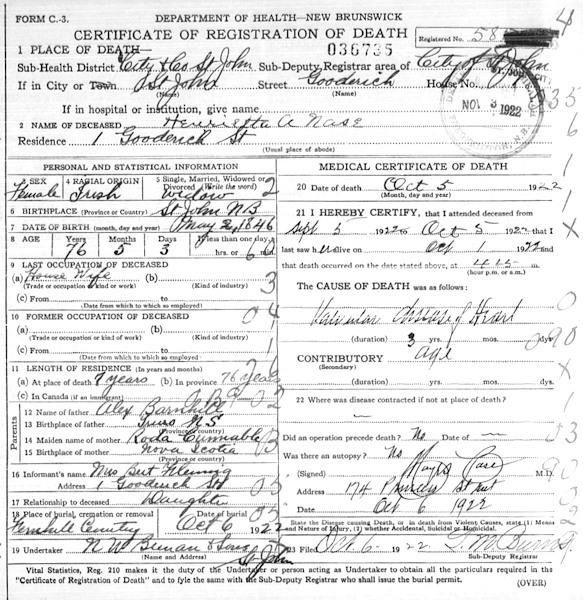 FORM C.-3.
DEPARTMENT OF HEALTH—NEW BRUNSWICK
CERTIFICATE OF REGISTRATION OF DEATH
Registered No. 58
1 PLACE OF DEATH—
036735
Sub-Health District City & Co St John Sub-Deputy Registrar area of City of St John
If in City or Town St John Street Gooderich House No. 1
(Name) (Name)
If in hospital or institution, give name
NOV 3 1922
2 NAME OF DECEASED Henrietta A Nase
Residence 1 Gooderich St
(Usual place of abode)
PERSONAL AND STATISTICAL INFORMATION
3 SEX Female
4 RACIAL ORIGIN Irish
5 Single, Married, Widowed or Divorced (Write the word) Widow 2
6 BIRTHPLACE (Province or Country) St John N B
7 DATE OF BIRTH (month, day and year) May 2, 1846
8 AGE Years 76 Months 5 Days 3 If less than one day, hrs. or min.
9 LAST OCCUPATION OF DECEASED
(a) House Wife (b)
(Trade or occupation or kind of work) (Kind of industry)
(c) From to
(Date from which to which so employed)
10 FORMER OCCUPATION OF DECEASED
(a) (b)
(Trade or occupation or kind of work) (Kind of industry)
(c) From to
(Date from which to which so employed)
11 LENGTH OF RESIDENCE (In years and months)
(a) At place of death 7 years (b) In province 76 years
(c) In Canada (if an immigrant)
Parents
12 Name of father Alex Barnhill
13 Birthplace of father Truro N S
(Province or country)
14 Maiden name of mother
15 Birthplace of mother Nova Scotia
(Province or country)
16 Informant's name Mrs Burt Fleming
Address 1 Gooderich St
17 Relationship to deceased Daughter
18 Place of burial, cremation or removal Date of burial
Fernhill Cemetry Oct 6 1922
19 Undertaker N W Brenan & Sons St John
(Name and Address)
MEDICAL CERTIFICATE OF DEATH
20 DATE OF DEATH Oct 5 1922
(Month, day and year)
21 I HEREBY CERTIFY, that I attended deceased from
Sept 5 1922 to Oct 5 1922
last saw h alive on Oct 1 1922
and that death occurred on the date stated above, at 4.15 m.
(hour p.m. or a.m.)
The CAUSE OF DEATH was as follows:
Valvular disease of Heart
(duration) 3 yrs. mos. ds.
CONTRIBUTORY age
(Secondary)
(duration) yrs. mos. ds.
22 Where was disease contracted if not at place of death?
Did an operation precede death? No Date of —
Was there an autopsy? No
(Signed) M.D.
Address 174 St
Date Oct 6 1922
State the Disease Causing Death, or in death from Violent Causes, state (1) Means and Nature of Injury, (2) whether Accidental, Suicidal or Homicidal.
23 Filed Oct. 6 - 1922
Sub-Deputy Registrar
Vital Statistics, Reg. 210 makes it the duty of the Undertaker or person acting as Undertaker to obtain all the particulars required in the
"Certificate of Registration of Death" and to fyle the same with the Sub-Deputy Registrar who shall issue the burial permit.
(OVER)